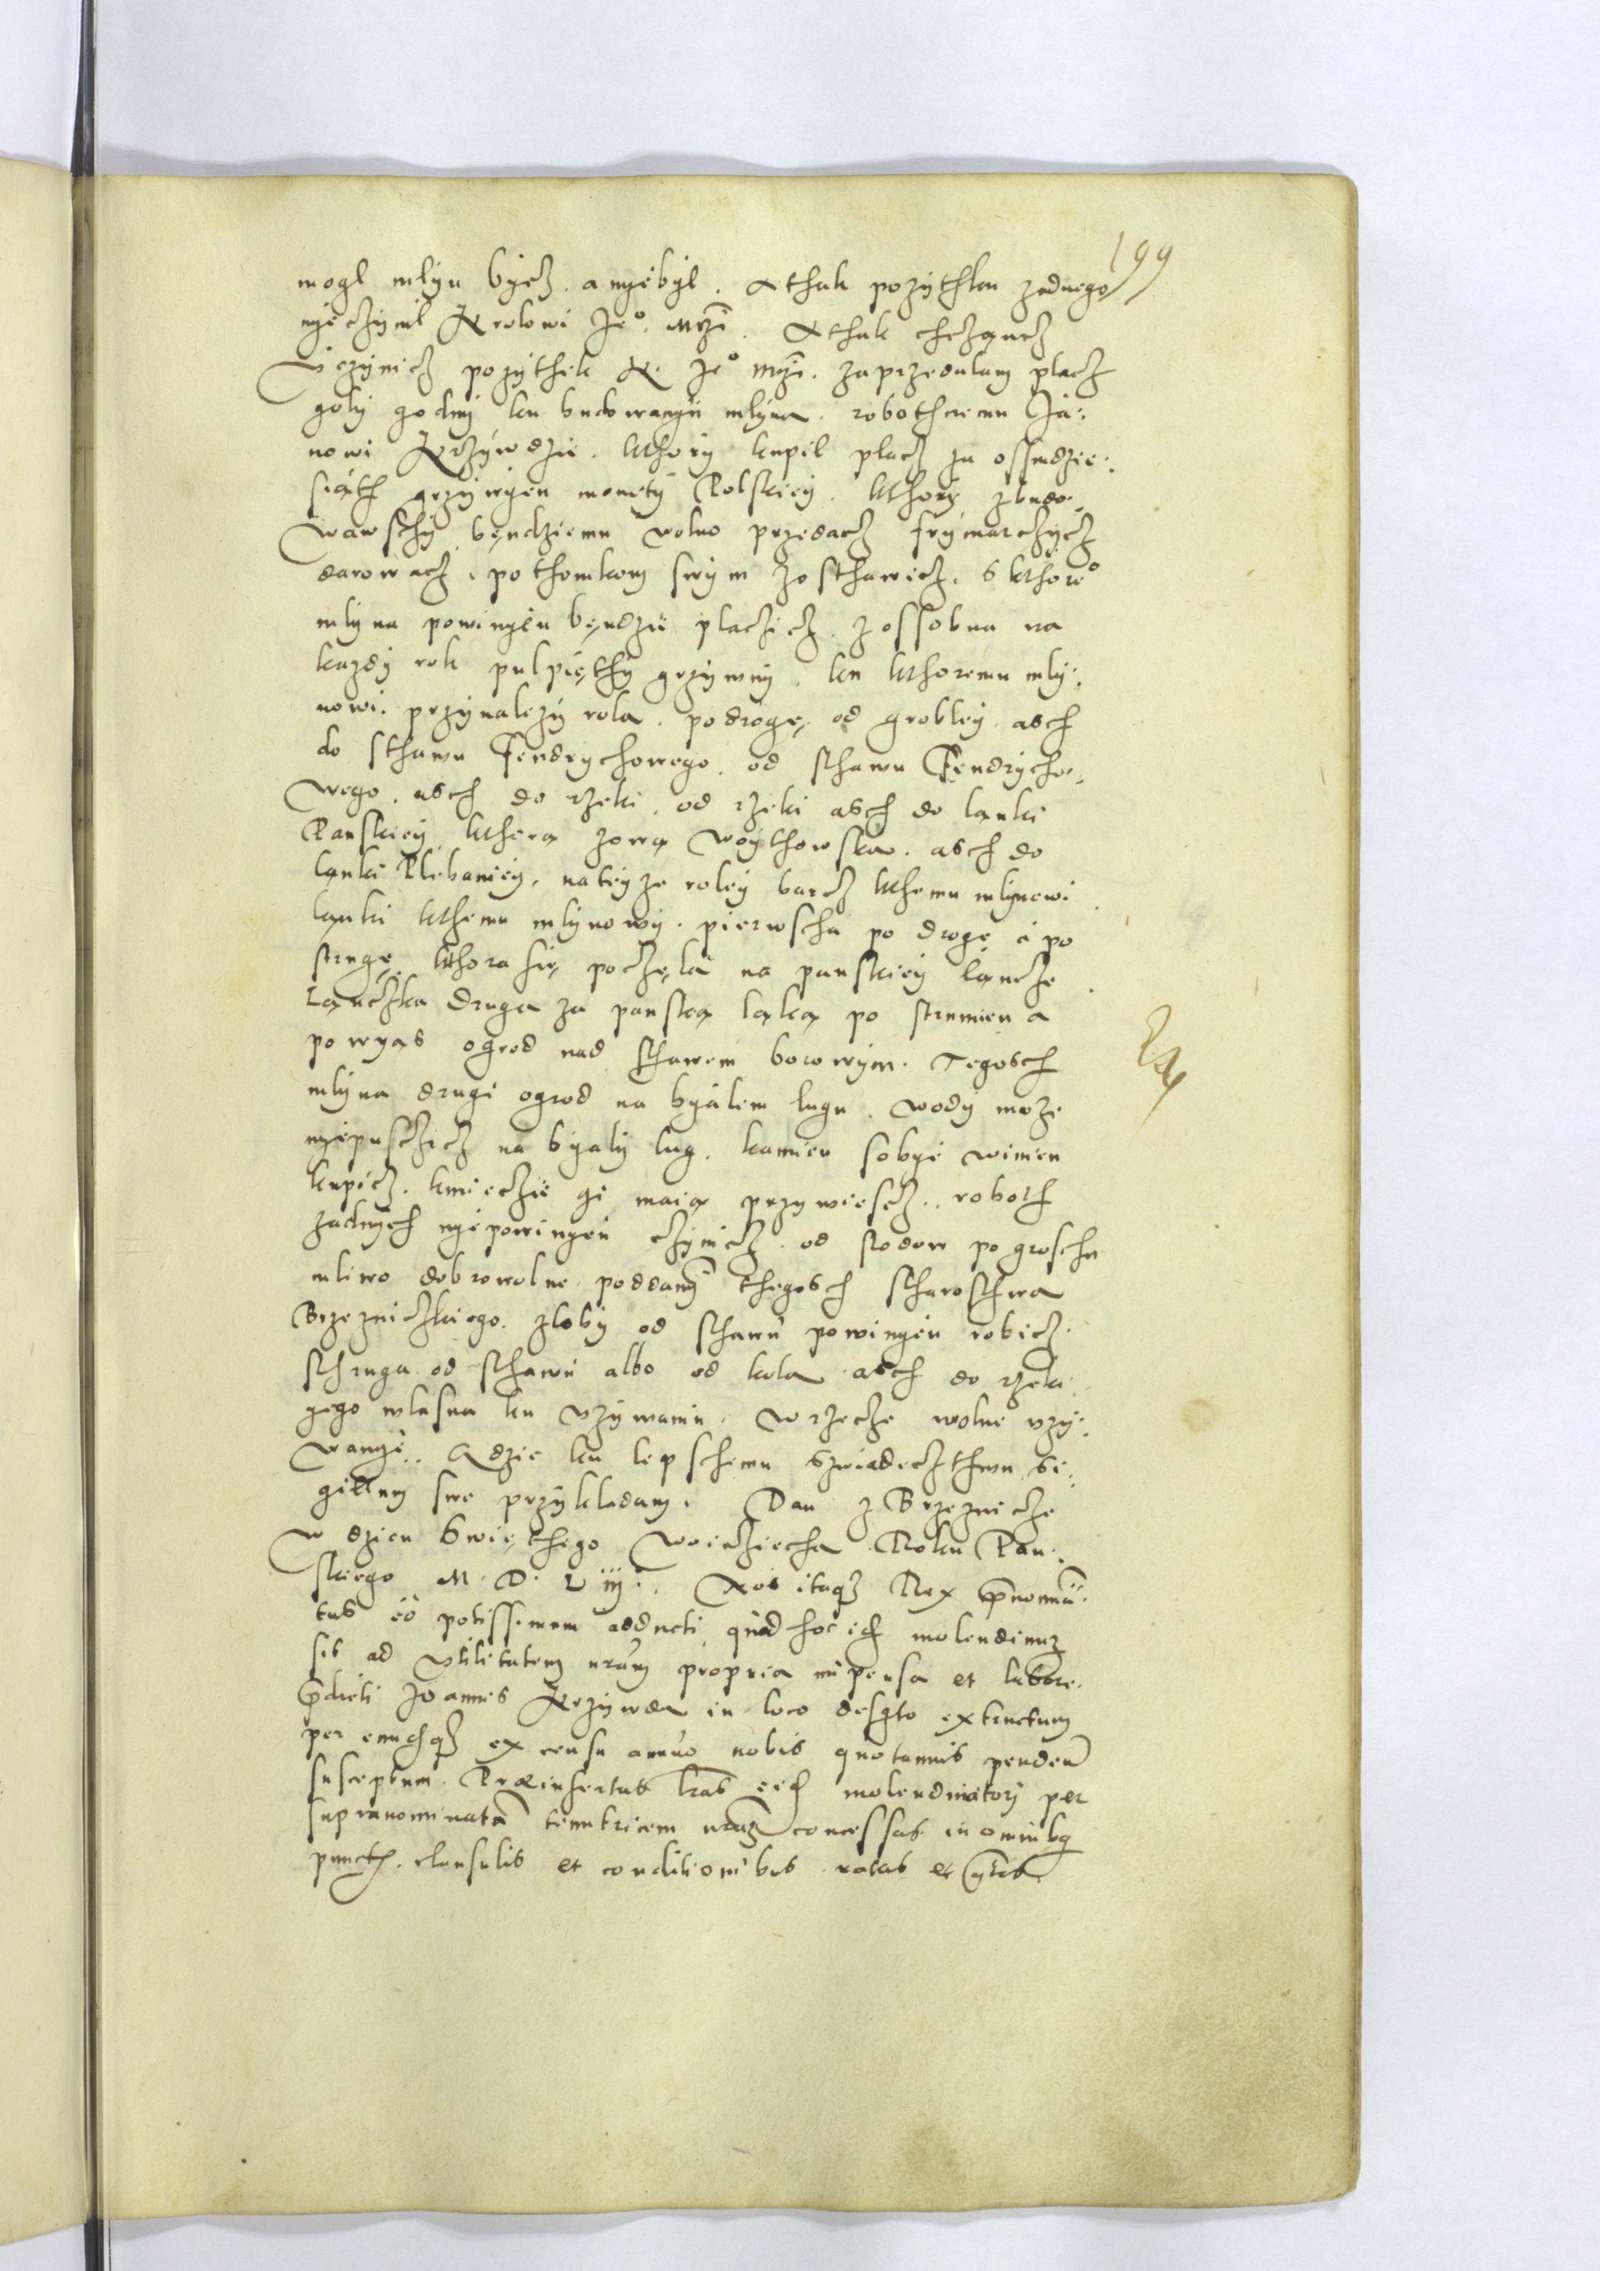 199
mogl mlyn bycz. a nyebyl. A thak pozythku zadnego
nyeczynil Krolowi Je° Mczi. A thak chczancz
Uczynicz pozythek K. Je° Mczi. zaprzedalam placz
goly godny ku budowanyu mlyna. robothnemu Ja:
nowi Krzywdzie. kthory kupil placz za ossmdzie:
siąth grzywyen monety Polskiey. kthory zbudo:
wawschy bęndziemu wolno przedacz frymarczycz
darowacz, pothomkom swym zosthawicz. s kthore°
mlyna powinyen bęndzie placzicz zossobna na
kazdy rok pulpięthy grzywny. ku kthoremu mly:
nowi. przynalezy rola. podrogę. od grobley. asch
do sthawu Fendrychowego. od sthawu Fendrycho:
wego. asch do rzeki. od rzeki asch do lanki
Panskiey kthora zowa woythowska. asch do
lanki Plebaniey. na teyze roley barcz kthemu mlynowi
lanki kthemu mlynowy. pierwscha po drogę i po
strugę kthora się poczęla na panskiey lancze
Lanczka druga za panską laką po strumien a
powyas ogrod nad sthawem borowym. Tegosch
mlyna drugi ogrod na byalem lugu. wody moze
nyepusczicz na byaly lug. kamien sobye winien
kupicz. kmieczie gi maią przywiescz. roboth
zadnych nyepowinyen czynicz. od slodow po groschu
mliwo dobrowolne poddanym thegosch stharosthwa
Brzezniczkiego. zloby od sthawu powinyen robicz.
sthruga od sthawu albo od kola asch do rzeki
gego wlasna ku uzywaniu. w rzecze wolne uzy:
wanye. Gdzie ku lepschemu szwiadecztwu si:
gillum swe przykladam. Dan z Brzeznicze
w dzien Swięthego Woiciecha Roku Pan:
skiego M. D. L iij. Nos itaqz Rex pnomina
tus eo potissimum adducti, quod hoc id molendinuz
sit ad utilitatem nram propria impensa et labore.
pdicti Joannis Krzywda in loco desto extructum
per eundqz ex censu annuo nobis quotannis penden
susceptum. Præinsertas lras eid molendinatori per
supranominata tenutricem nraz concessas in omnibq
punctis. clausulis et conditionibus ratas et gratas